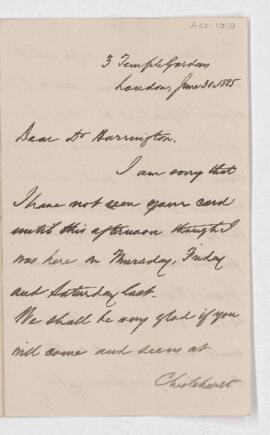 Acc. 1010
3 Temple Gardens
London, June 30, 1885
Dear Dr Harrington,
I am sorry that
I have not seen your card
until this afternoon though I
was here on Thursday, Friday
and Saturday last.
We shall be very glad if you
will come and see us at
Chislehurst